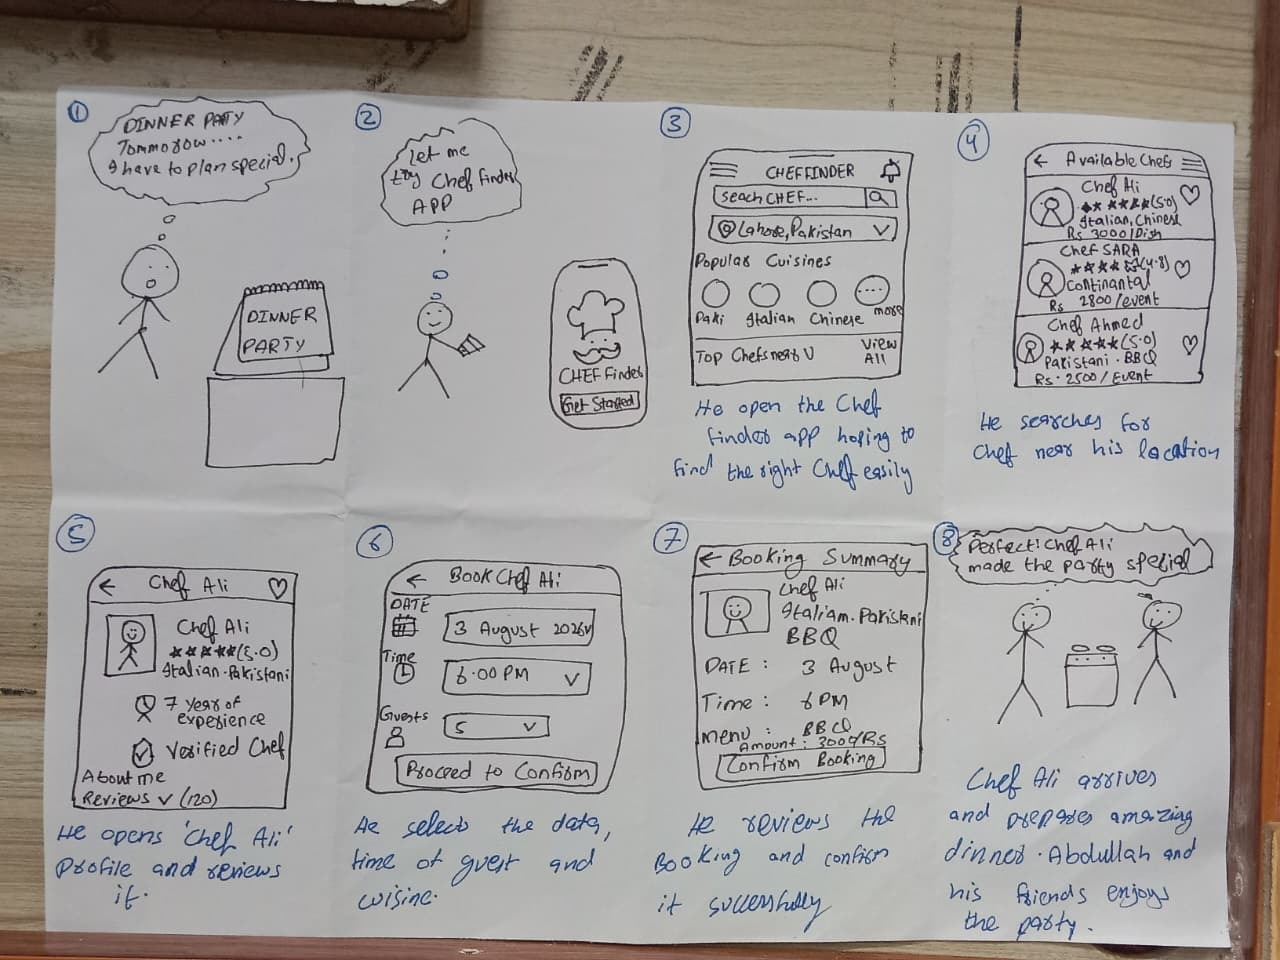 1
DINNER PATY
Tommorow....
I have to plan special.
DINNER
PARTY
2
Let me
try Chef finder
APP
CHEF Finder
Get Started
3
CHEFFINDER
seach CHEF...
Lahore, Pakistan
Popular Cuisines
Paki Italian Chinese more
Top Chefs near U View
All
He open the Chef
finder app hoping to
find the right Chef easily
4
← Available Chefs
Chef Ali
★★★★★(5.0)
Italian, Chinese
Rs 3000/Dish
Chef SARA
★★★★☆(4.8)
Continantal
Rs 2800/event
Chef Ahmed
★★★★★(5.0)
Pakistani. BBQ
Rs. 2500/Event
He searches for
Chef near his location
5
← Chef Ali
Chef Ali
★★★★★(5.0)
Italian.Pakistani
7 year of
experience
Verified Chef
About me
Reviews v (120)
He opens 'Chef Ali'
Profile and reviews
it.
6
← Book Chef Ali
DATE
3 August 2026
Time
6.00 PM
Guests
5
Proceed to Confirm
He selects the date,
time of guest and
cuisine.
7
← Booking Summary
Chef Ali
Italian.Pakistani
BBQ
DATE : 3 August
Time : 6 PM
menu : BBQ
Amount : 3000/Rs
Confirm Booking
He reviews the
Booking and confirm
it successfully
8
Perfect! Chef Ali
made the party special
Chef Ali arrives
and prepares amazing
dinner. Abdullah and
his friends enjoys
the party.